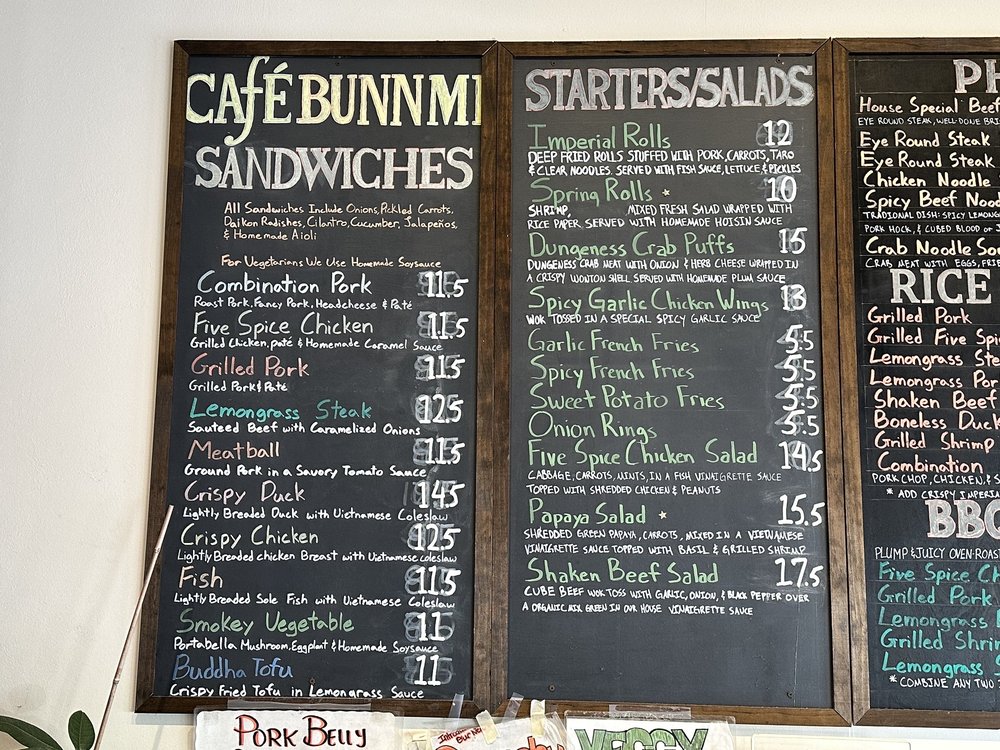 CAFÉ BUNN MI
SANDWICHES
All Sandwiches Include Onions, Pickled Carrots,
Daikon Radishes, Cilantro, Cucumber, Jalapeños,
& Homemade Aioli
For Vegetarians We Use Homemade Soysauce
Combination Pork 11.5
Roast Pork, Fancy Pork, Headcheese & Paté
Five Spice Chicken 11.5
Grilled Chicken, paté & Homemade Caramel Sauce
Grilled Pork 11.5
Grilled Pork & Paté
Lemongrass Steak 12.5
Sauteed Beef with Caramelized Onions
Meatball 11.5
Ground Pork in a Savory Tomato Sauce
Crispy Duck 14.5
Lightly Breaded Duck with Vietnamese Coleslaw
Crispy Chicken 12.5
Lightly Breaded chicken Breast with Vietnamese coleslaw
Fish 11.5
Lightly Breaded Sole Fish with Vietnamese Coleslaw
Smokey Vegetable 11
Portabella Mushroom, Eggplant & Homemade Soysauce
Buddha Tofu 11
Crispy Fried Tofu in Lemongrass Sauce
STARTERS/SALADS
Imperial Rolls 12
DEEP FRIED ROLLS STUFFED WITH PORK, CARROTS, TARO
& CLEAR NOODLES. SERVED WITH FISH SAUCE, LETTUCE, & PICKLES
Spring Rolls * 10
SHRIMP, MIXED FRESH SALAD WRAPPED WITH
RICE PAPER. SERVED WITH HOMEMADE HOISIN SAUCE
Dungeness Crab Puffs 15
DUNGENESS CRAB MEAT WITH ONION & HERB CHEESE WRAPPED IN
A CRISPY WONTON SHELL SERVED WITH HOMEMADE PLUM SAUCE
Spicy Garlic Chicken Wings 13
WOK TOSSED IN A SPECIAL SPICY GARLIC SAUCE
Garlic French Fries 5.5
Spicy French Fries 5.5
Sweet Potato Fries 5.5
Onion Rings 5.5
Five Spice Chicken Salad 14.5
CABBAGE, CARROTS, MINTS, IN A FISH VINAIGRETTE SAUCE
TOPPED WITH SHREDDED CHICKEN & PEANUTS
Papaya Salad * 15.5
SHREDDED GREEN PAPAYA, CARROTS, MIXED IN A VIETNAMESE
VINAIGRETTE SAUCE TOPPED WITH BASIL & GRILLED SHRIMP
Shaken Beef Salad 17.5
CUBE BEEF WOK TOSS WITH GARLIC, ONION, & BLACK PEPPER OVER
A ORGANIC MIX GREEN IN OUR HOUSE VINAIGRETTE SAUCE
PH
House Special Beef
EYE ROUND STEAK, WELL-DONE BRIS
Eye Round Steak
Eye Round Steak
Chicken Noodle
Spicy Beef Nood
TRADIONAL DISH: SPICY LEMONG
PORK HOCK, & CUBED BLOOD or
Crab Noodle So
CRAB MEAT WITH EGGS, FRIE
RICE
Grilled Pork
Grilled Five Spic
Lemongrass Ste
Lemongrass Por
Shaken Beef
Boneless Duck
Grilled Shrimp
Combination
PORK CHOP, CHICKEN, & S
* ADD CRISPY IMPERIA
BBQ
PLUMP & JUICY OVEN-ROAS
Five Spice Ch
Grilled Pork
Lemongrass
Grilled Shrim
Lemongrass
* COMBINE ANY TWO
PORK BELLY
VEGGY